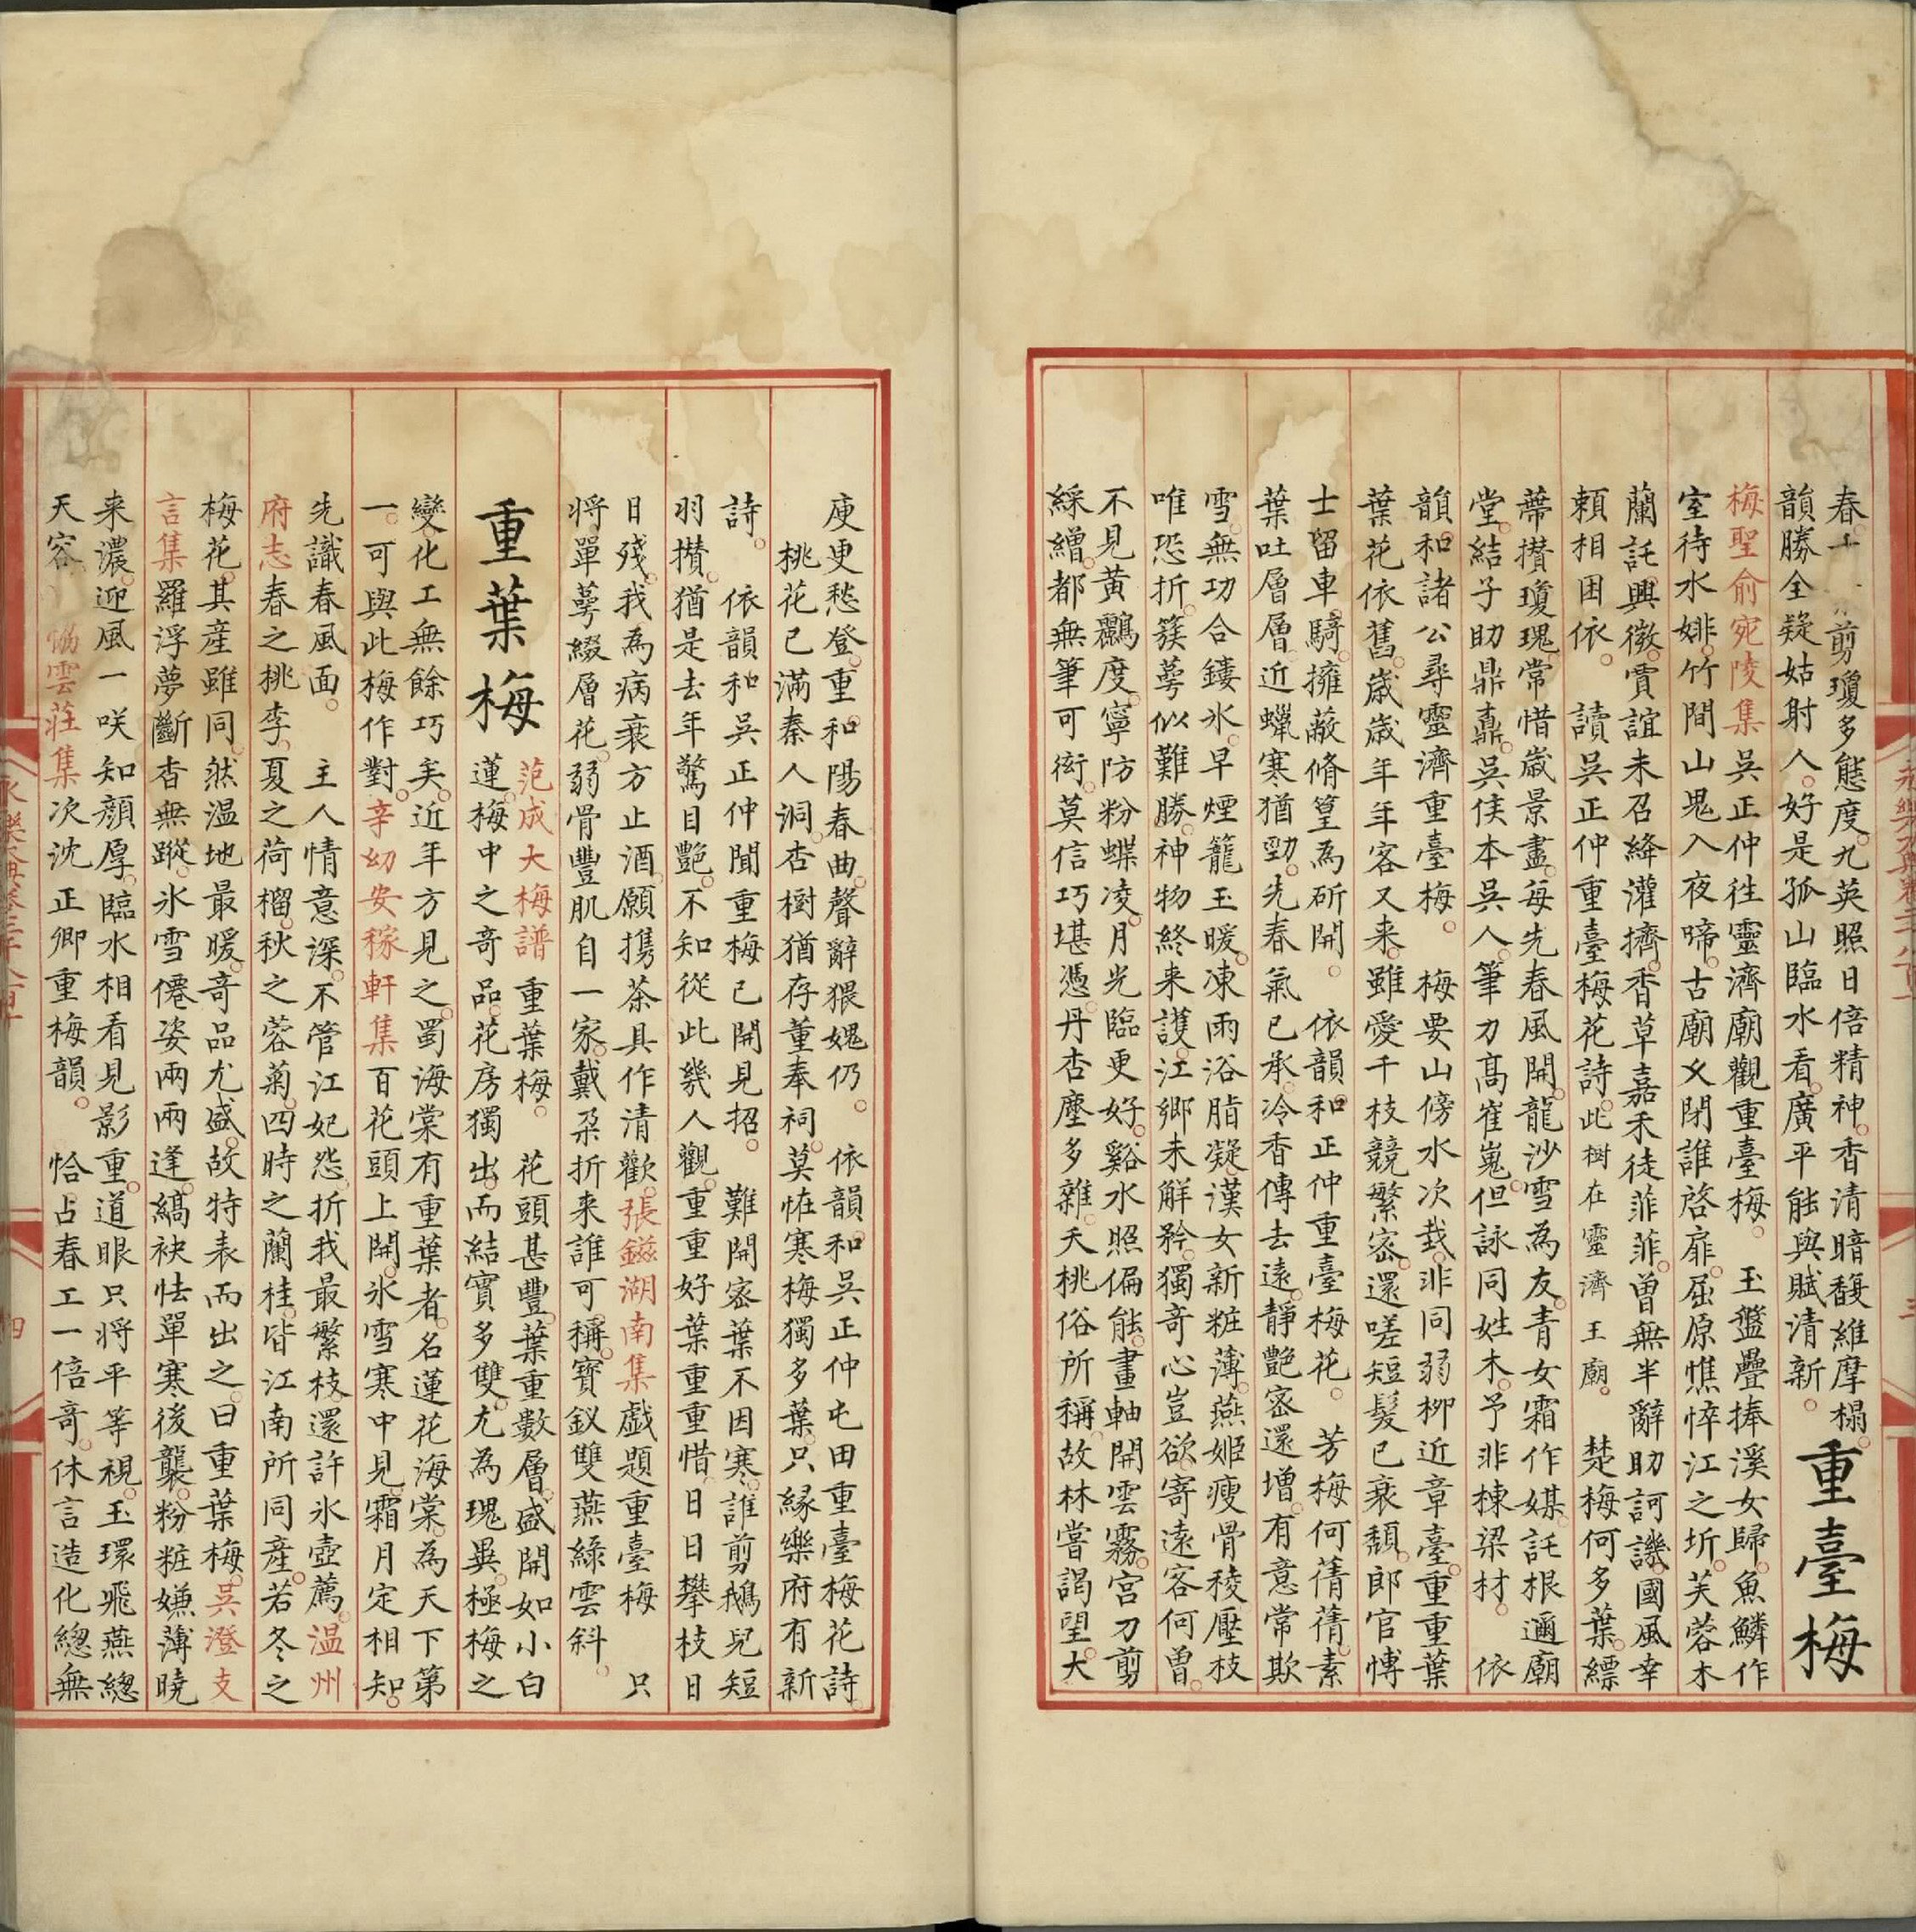 春工 剪瓊多態度九英照日倍精神香清暗馥維摩榻
韻勝全疑姑射人好是孤山臨水看廣平能與賦清新
重臺梅
梅聖俞宛陵集吳正仲往靈濟廟觀重臺梅 玉盤疊捧溪女歸魚鱗作
室待水婔竹間山鬼入夜啼古廟夊閉誰啓扉屈原憔悴江之圻芙蓉木
蘭託興微賈誼未召絳灌擠香草嘉禾徒菲菲曾無半辭助訶譏國風幸
賴相困依 讀吳正仲重臺梅花詩此樹在靈濟王廟 楚梅何多葉縹
蔕攅瓊瑰常惜歲景盡每先春風開龍沙雪為友青女霜作媒託根邇廟
堂結子助鼎鼐吳侯本吳人筆力高崔嵬但詠同姓木予非棟梁材 依
韻和諸公尋靈濟重臺梅 梅要山傍水次栽非同弱柳近章臺重重葉
葉花依舊歲歲年年客又来雖愛千枝競繁宻還嗟短髮已衰頽郎官愽
士留車騎擁蔽脩篁為斫開 依韻和正仲重臺梅花 芳梅何蒨蒨素
葉吐層層近蠟寒猶勁先春氣已承冷香傳去遠靜艷宻還增有意常欺
雪無功合鏤氷早煙籠玉暖凍雨浴脂凝漢女新粧薄燕姬瘦骨稜壓枝
唯恐折簇萼似難勝神物終来護江郷未解矜獨奇心豈欲寄遠客何曽
不見黃鸝度寧防粉蝶凌月光臨更好谿水照偏能畫軸開雲霧宮刀剪
綵繒都無筆可衒莫信巧堪憑丹杏塵多雜夭桃俗所稱故林嘗謁望大
庾更愁登重和陽春曲聲辭猥媿仍 依韻和吳正仲屯田重臺梅花詩
桃花已滿秦人洞杏樹猶存董奉祠莫恠寒梅獨多葉只緣樂府有新
詩 依韻和吳正仲聞重梅已開見招 難開宻葉不因寒誰剪鵝兒短
羽攅猶是去年驚目艷不知從此幾人觀重重好葉重重惜日日攀枝日
日殘我為病衰方止酒願携茶具作清歡張鎡湖南集戯題重臺梅 只
将單萼綴層花弱骨豐肌自一家戴朶折来誰可稱寳釵雙燕緑雲斜
重葉梅
范成大梅譜 重葉梅 花頭甚豐葉重數層盛開如小白
蓮梅中之奇品花房獨出而結實多雙尤為瑰異極梅之
變化工無餘巧矣近年方見之蜀海棠有重葉者名蓮花海棠為天下第
一可與此梅作對辛幼安稼軒集百花頭上開氷雪寒中見霜月定相知
先識春風面 主人情意深不管江妃怨折我最繁枝還許氷壺薦温州
府志春之桃李夏之荷榴秋之蓉菊四時之蘭桂皆江南所同産若冬之
梅花其産雖同然温地最暖奇品尤盛故特表而出之曰重葉梅吳澄支
言集羅浮夢斷杳無蹤氷雪僊姿兩兩逢縞袂怯單寒後襲粉粧嫌薄曉
来濃迎風一咲知顔厚臨水相看見影重道眼只将平等視玉環飛燕緫
天容 雲莊集次沈正卿重梅韻 恰占春工一倍奇休言造化緫無